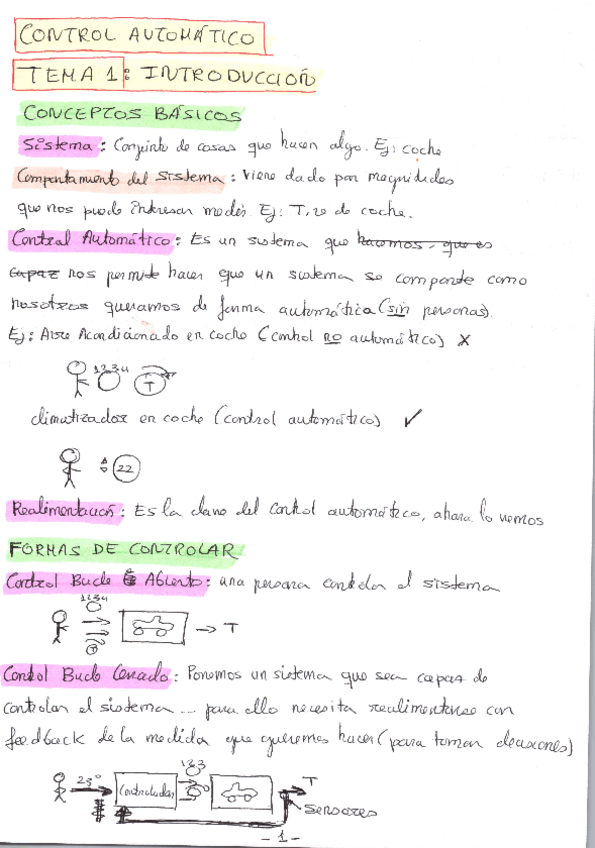 CONTROL AUTOMÁTICO
TEMA 1: INTRODUCCIÓN
CONCEPTOS BÁSICOS
Sistema: Conjunto de cosas que hacen algo. Ej: coche
Comportamiento del sistema: Viene dado por magnitudes
que nos puede interesar medir. Ej: T, v de coche.
Control Automático: Es un sistema que hacemos, que es
capaz nos permite hacer que un sistema se comporte como
nosotros queramos de forma automática (sin personas).
Ej: Aire Acondicionado en coche (control no automático) X
1 2 3 4
T
climatizador en coche (control automático) ✓
22
Realimentación: Es la clave del control automático, ahora lo vemos
FORMAS DE CONTROLAR
Control Bucle Abierto: una persona controla el sistema
1 2 3 4
T
→ T
Control Bucle Cerrado: Ponemos un sistema que sea capaz de
controlar el sistema ... para ello necesita realimentarse con
feedback de la medida que queremos hacer (para tomar decisiones)
23°
Controlador
1 2 3
T
sensores
- 1 -